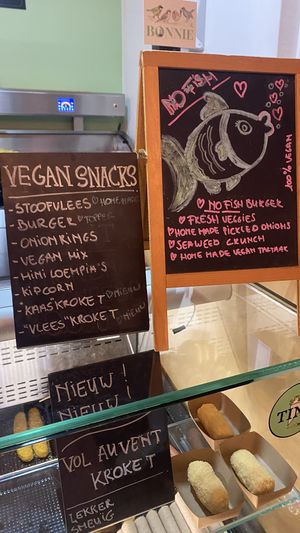 BONNIE
NO FISH
100% VEGAN
♡ NO FISH BURGER
♡ FRESH VEGGIES
♡ HOME MADE PICKLED ONIONS
♡ SEAWEED CRUNCH
♡ HOME MADE VEGAN TARTAAR
VEGAN SNACKS
- STOOFVLEES ♡ HOME MADE
- BURGER ♡ TOPPER
- ONIONRINGS
- VEGAN MIX
- MINI LOEMPIA'S
- KIPCORN
- KAAS"KROKET ♡ NIEUW
- "VLEES"KROKET ♡ NIEUW
NIEUW!
NIEUW!
VOL AU VENT
KROKET
LEKKER
SMEUÏG